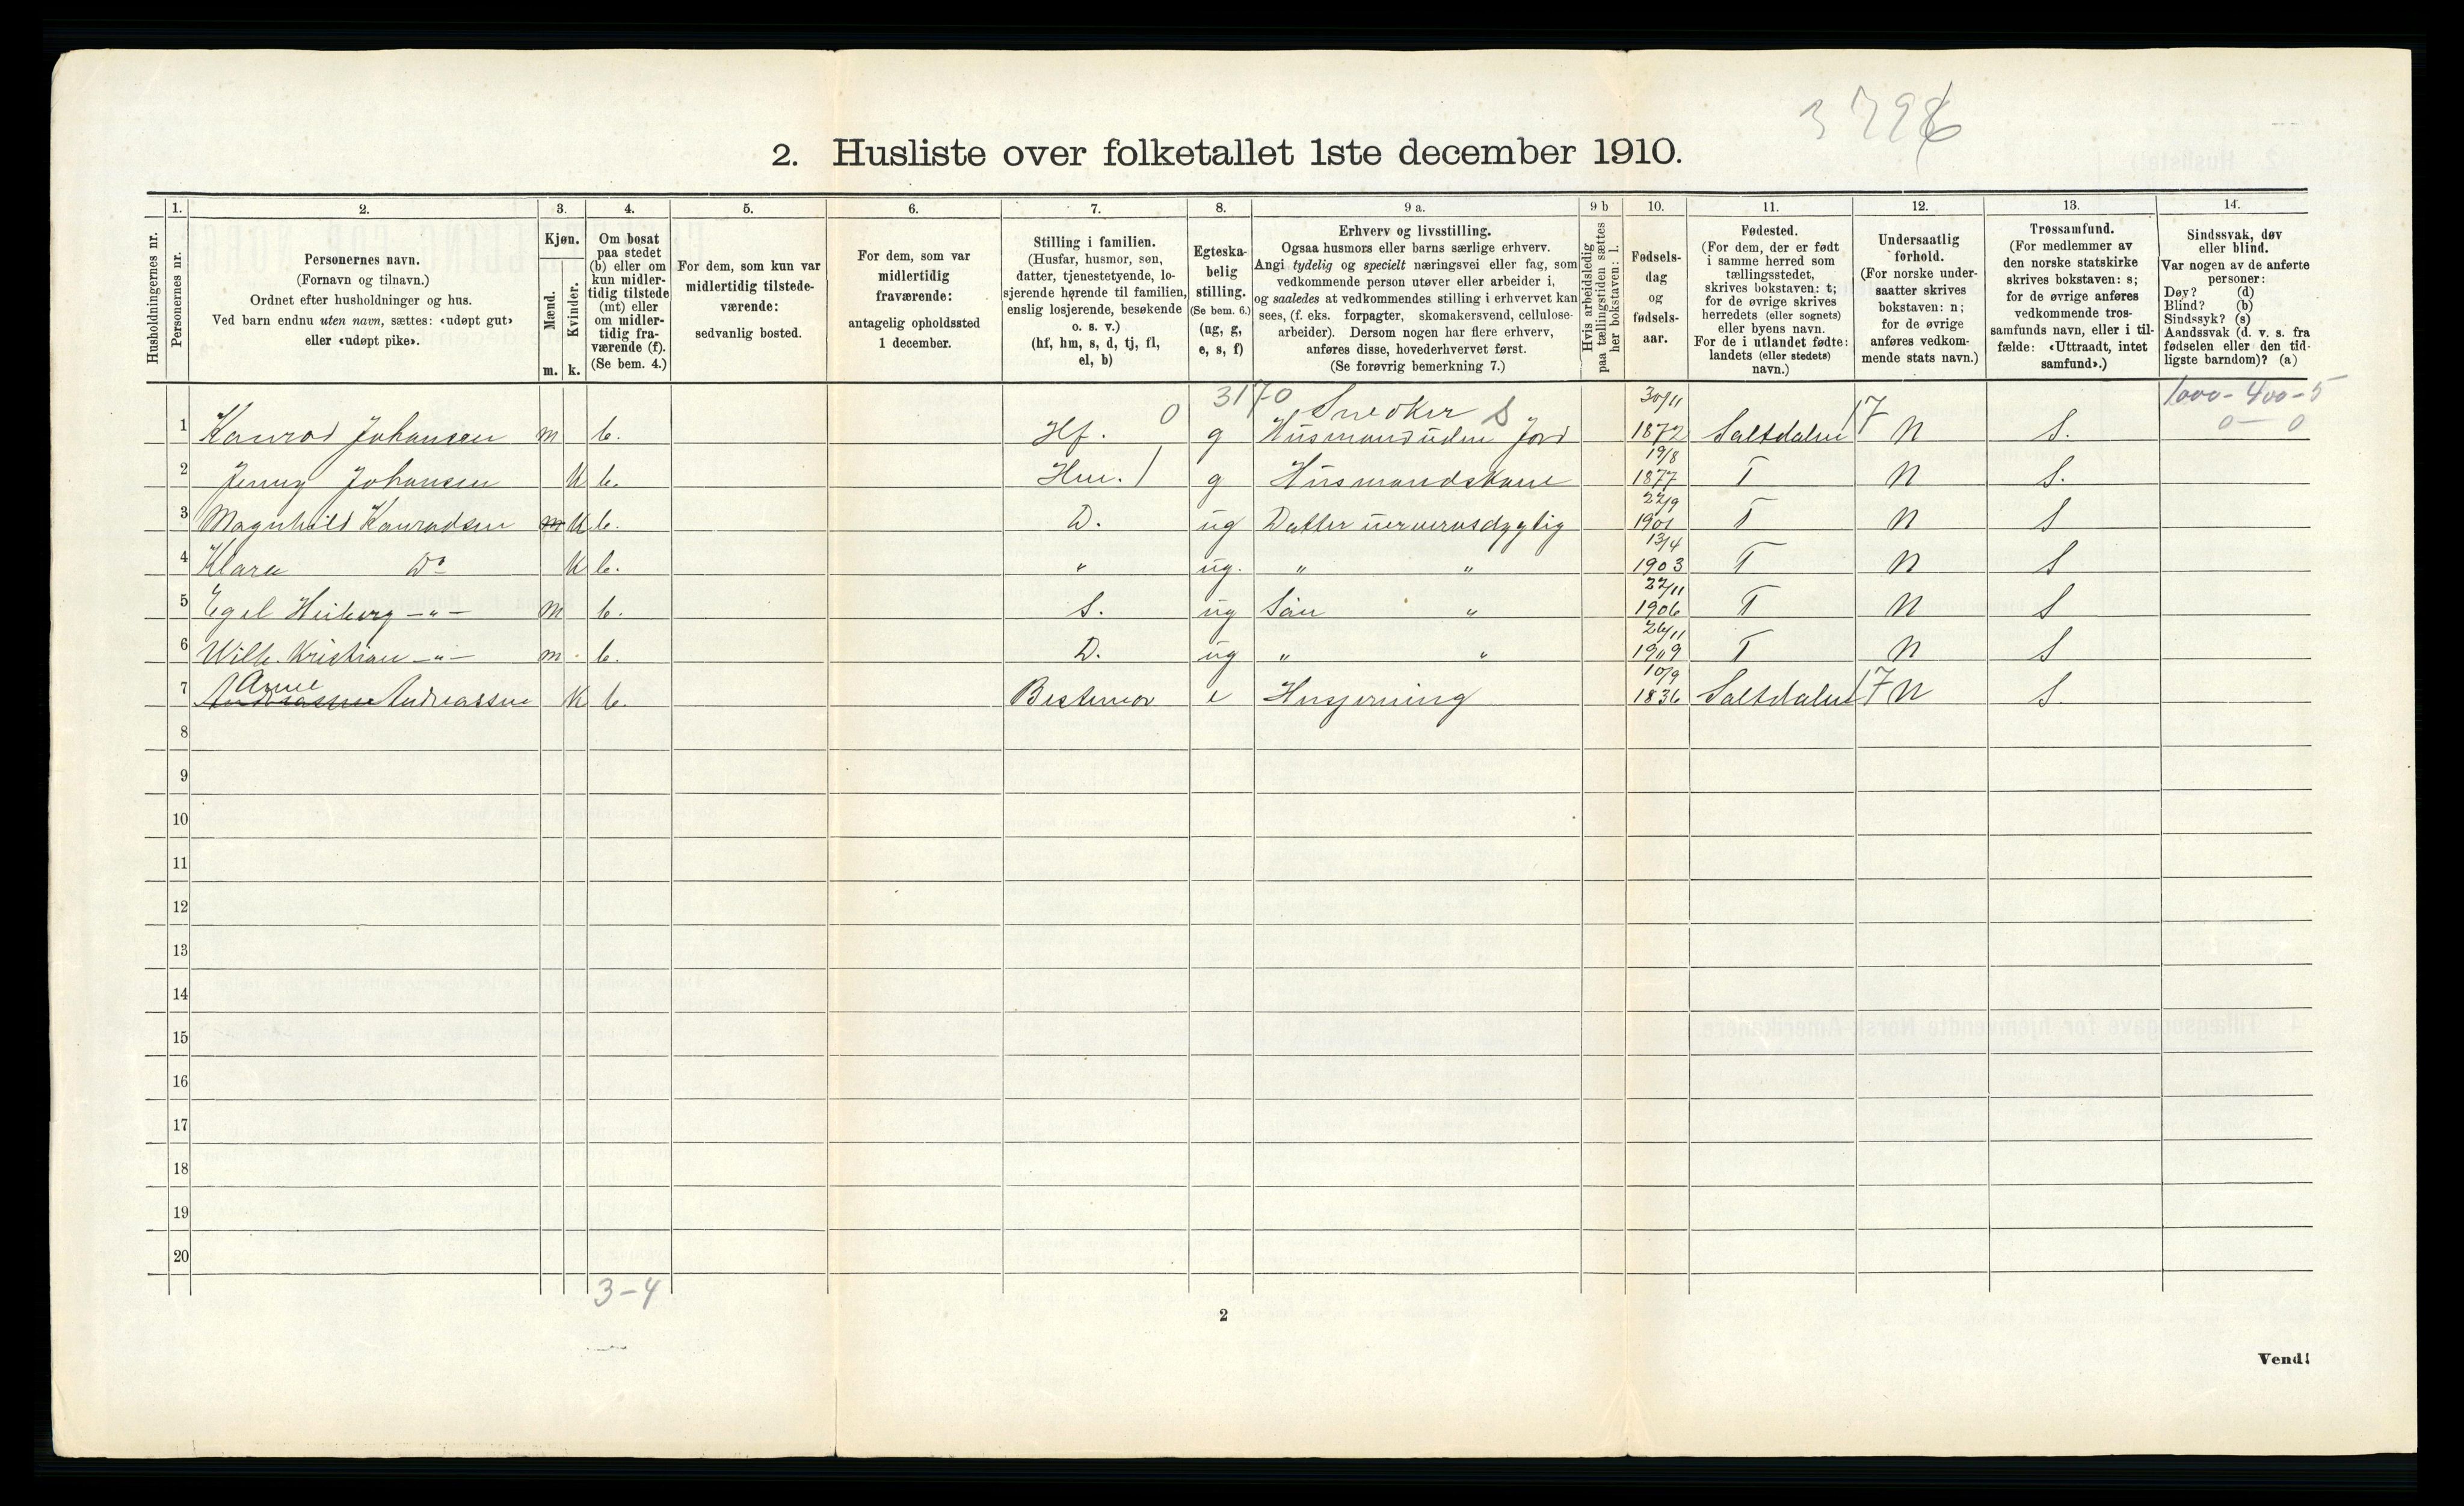 3798
2. Husliste over folketallet 1ste december 1910.
Husholdningernes nr.
1. Personernes nr.
2. Personernes navn.
(Fornavn og tilnavn.)
Ordnet efter husholdninger og hus.
Ved barn endnu uten navn, sættes: «udøpt gut»
eller «udøpt pike».
3. Kjøn.
Mænd. m.
Kvinder. k.
4. Om bosat
paa stedet
(b) eller om
kun midler-
tidig tilstede
(mt) eller
om midler-
tidig fra-
værende (f).
(Se bem. 4.)
5. For dem, som kun var
midlertidig tilstede-
værende:
sedvanlig bosted.
6. For dem, som var
midlertidig
fraværende:
antagelig opholdssted
1 december.
7. Stilling i familien.
(Husfar, husmor, søn,
datter, tjenestetyende, lo-
sjerende hørende til familien,
enslig losjerende, besøkende
o. s. v.)
(hf, hm, s, d, tj, fl,
el, b)
8. Egteska-
belig
stilling.
(Se bem. 6.)
(ug, g,
e, s, f)
9 a. Erhverv og livsstilling.
Ogsaa husmors eller barns særlige erhverv.
Angi tydelig og specielt næringsvei eller fag, som
vedkommende person utøver eller arbeider i,
og saaledes at vedkommendes stilling i erhvervet kan
sees, (f. eks. forpagter, skomakersvend, cellulose-
arbeider). Dersom nogen har flere erhverv,
anføres disse, hovederhvervet først.
(Se forøvrig bemerkning 7.)
9 b Hvis arbeidsledig
paa tællingstiden sættes
her bokstaven: l.
10. Fødsels-
dag
og
fødsels-
aar.
11. Fødested.
(For dem, der er født
i samme herred som
tællingsstedet,
skrives bokstaven: t;
for de øvrige skrives
herredets (eller sognets)
eller byens navn.
For de i utlandet fødte:
landets (eller stedets)
navn.)
12. Undersaatlig
forhold.
(For norske under-
saatter skrives
bokstaven: n;
for de øvrige
anføres vedkom-
mende stats navn.)
13. Trossamfund.
(For medlemmer av
den norske statskirke
skrives bokstaven: s;
for de øvrige anføres
vedkommende tros-
samfunds navn, eller i til-
fælde: «Uttraadt, intet
samfund».)
14. Sindssvak, døv
eller blind.
Var nogen av de anførte
personer:
Døv? (d)
Blind? (b)
Sindssyk? (s)
Aandssvak (d. v. s. fra
fødselen eller den tid-
ligste barndom)? (a)
3170 Snedker S 30/11 1000-400-5
1 Konrad Johansen m b. Hf. 0 g Husmand uden Jord 1872 Saltdalen 17 N S. 0-0
2 Jenny Johansen K b. Hm. 1 g Husmandskone 19/8 1877 T N S.
3 Magnhild Konradsen m K b. D. ug Datter 22/9 1901 T N S
4 Klara Do K b. " ug. " " 13/4 1903 T N S
5 Egil Heiberg -"- m b. S. ug Søn " 22/11 1906 T N S
6 Wilh. Kristian -"- m b. D. ug " " 26/11 1909 T N S
7 Anne Andreassen K b. Bestemor e Husgerning 10/9 1836 Saltdalen 17 N S.
8
9
10
11
12
13
14
15
16
17
18
19
20
3-4
2
Vend!